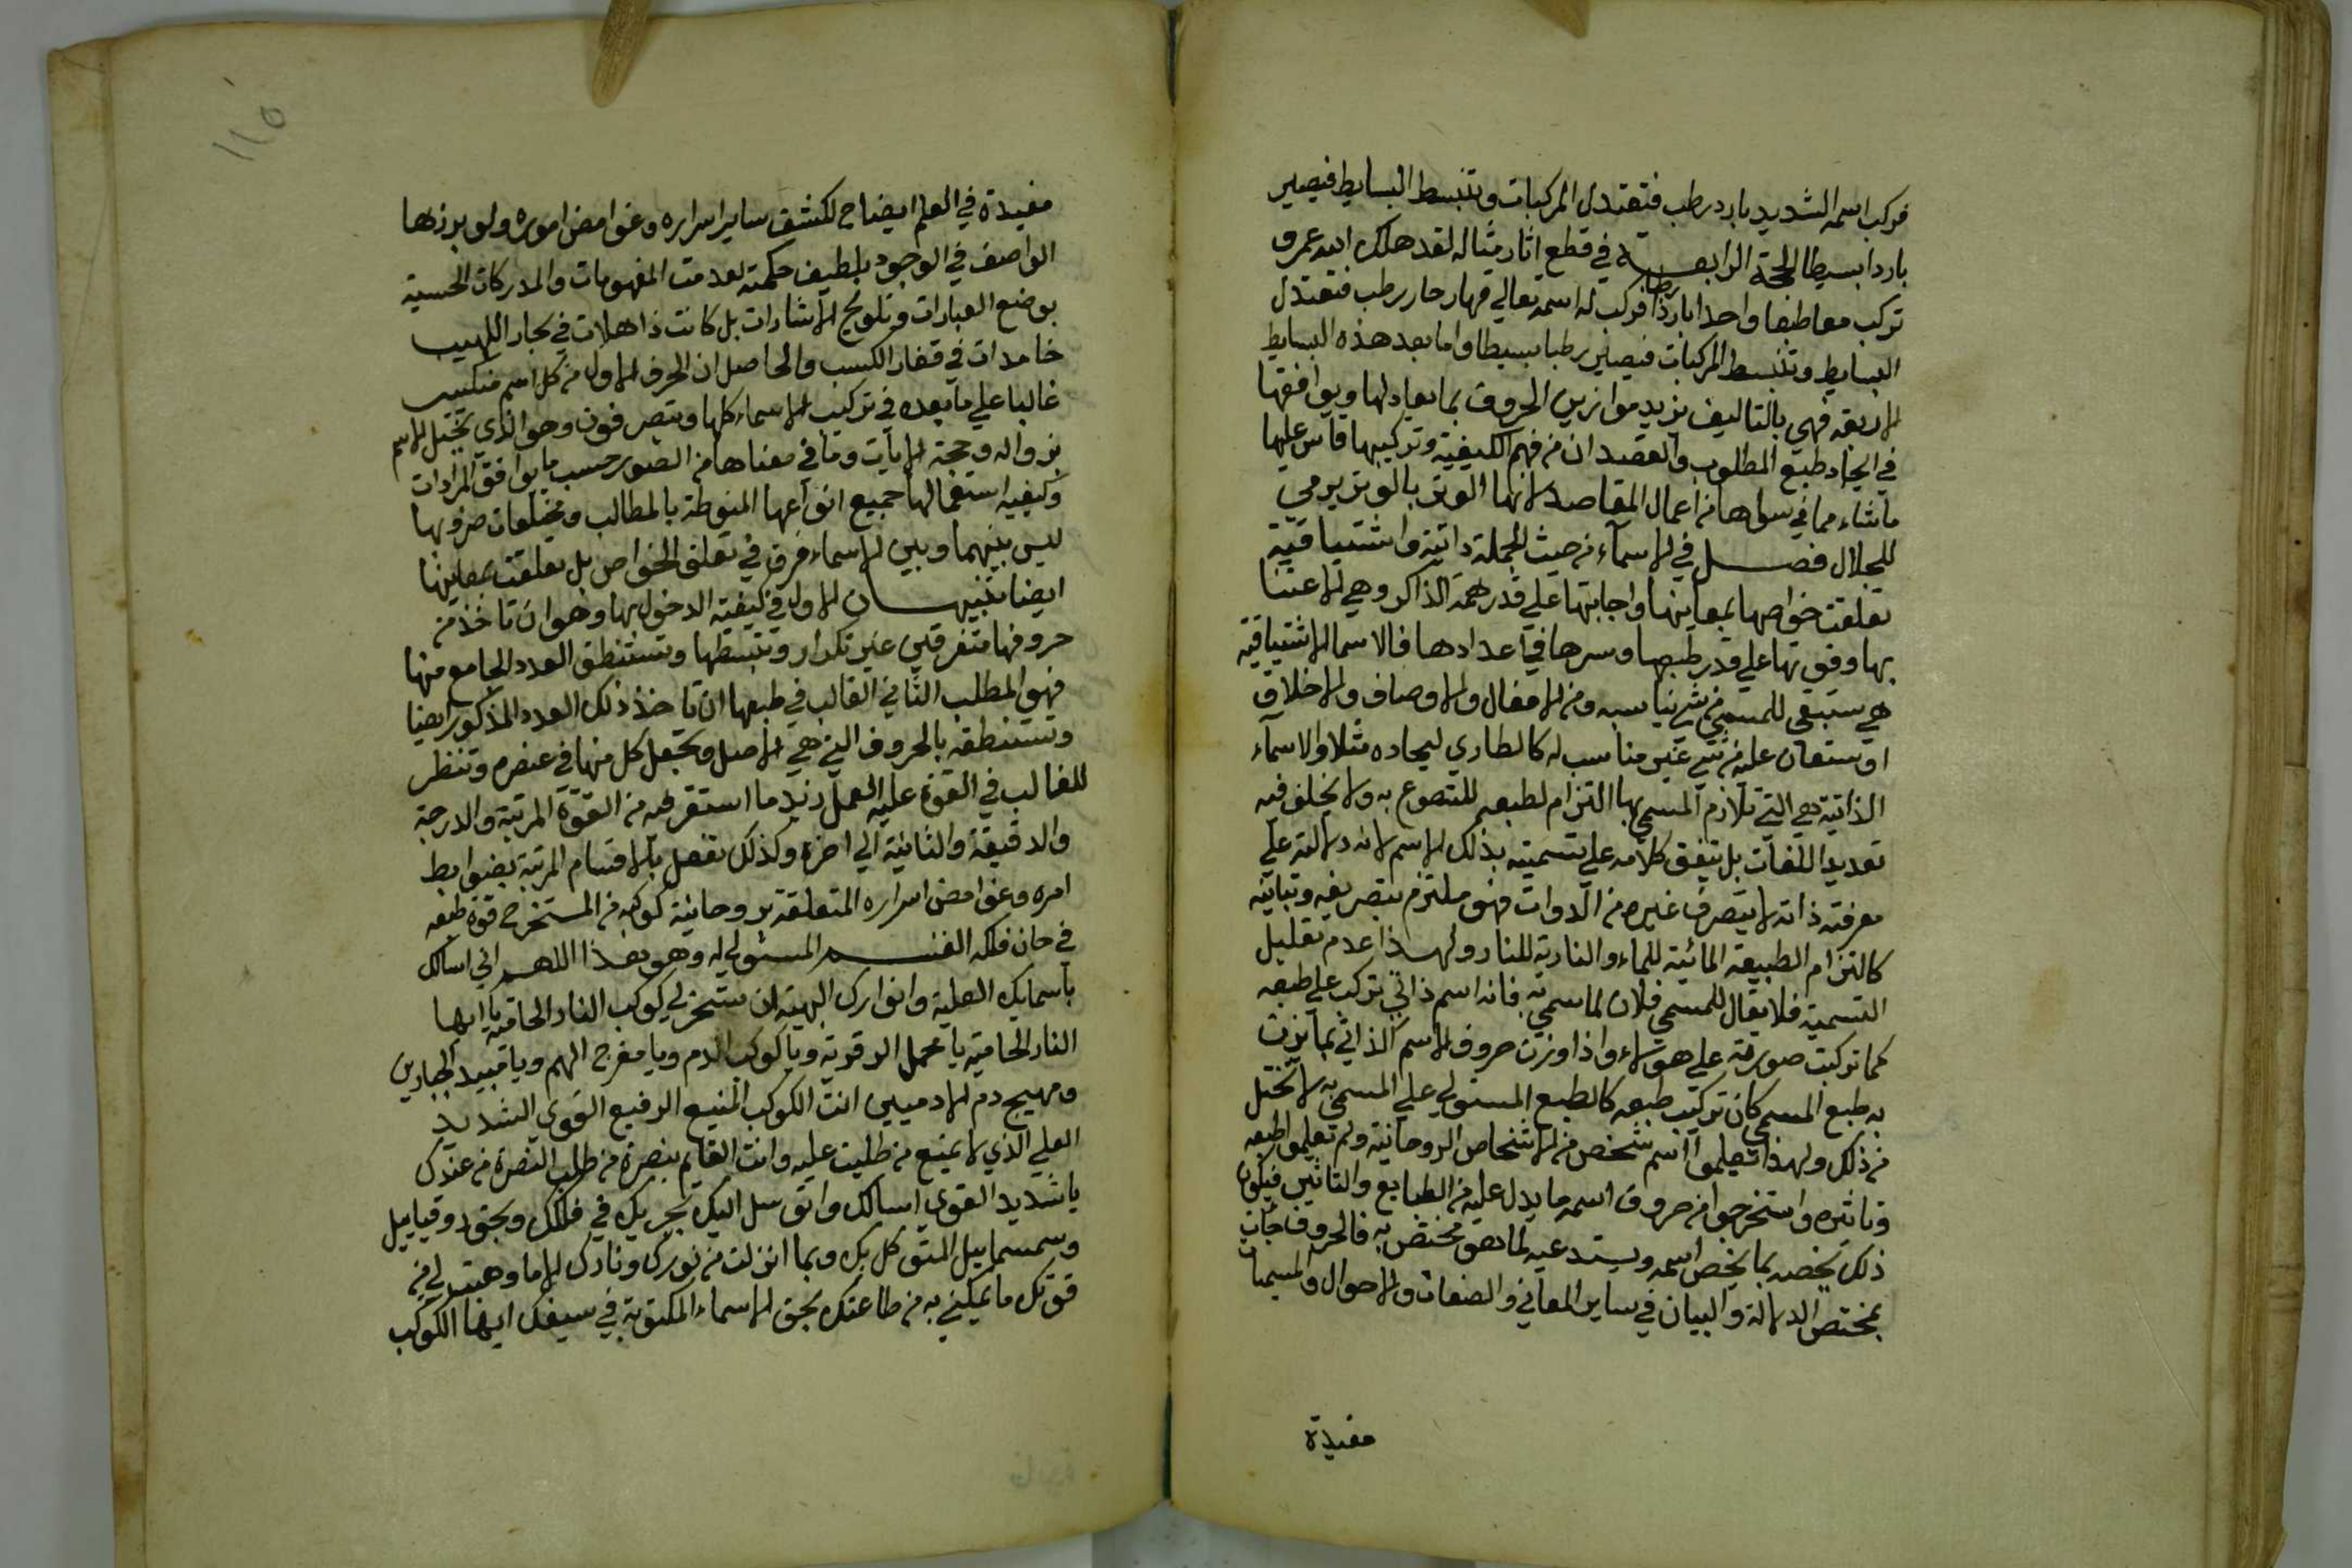 فركب اسمه الشديد بارد رطب فتعتدل المركبات وتنبسط البسايط فيصير
باردا بسيطا الحجة الرابعة في قطع اثار مثاله لقد هلك ابنه عمرو
تركب معاطبها واحدا باردا رطبا فركب له اسمه تعالي قهار حار رطب فتعتدل
البسايط وتنبسط المركبات فيصير رطبا بسيطا واما بعد هذه البسايط
الاربعة فهي بالتاليف يزيد موازين الحروف بما يعادلها ويوافقها
في ايجاد طبع المطلوب والقصد ان من فهم الكيفية وتركيبها قاس عليها
ما شاء مما في سواها من اعمال المقاصد لانها الوتر بالوتر يرمي
للجلال فصل في الاسمآء من حيث الجملة ذاتية واشتياقية
تعلقت خواصها بمعاينها واجابتها علي قدر همة الذاكر وهي الاعتنا
بها وقوتها علي قدر طبعها وسرها في اعدادها فالاسما الاشتياقية
هي ستبقى للمسمي من شئ يناسبه ومن الافعال والاوصاف والاخلاق
او ستعان عليه من شئ غير مناسب له كالطاري ليجاده مثلا والاسمآء
الذاتية هي التي تلازم المسمي بها التزام لطبعه للتصوع به ولا يخلق فيه
تعديد اللغات بل يتفق كلامه علي تسميته بذلك الاسم لانه دلالته علي
معرفته ذاته لا يتصرف غيره من الدوات فهو ملتزم بتصريفه وتباينه
كالتزام الطبيعة المائية للماء والنارية للنار ولهذا عدم تقليل
التسمية فلا يقال للمسمي فلان لما سمي به فانه اسم ذاتي تركب علي طبعه
كما تركبت صورته علي هؤلاء واذا وزنت حروف الاسم الذاتي بما يزن
به طبع المسمي كان تركيب طبعه كالطبع المستولي علي المسمي به لا تختل
من ذلك ولهذا تعلموا اسم شخص من الاشخاص الروحانية ولم تعلموا طبعه
وتاثيره واستخرجوا من حروف اسمه ما يدل عليه من الطبايع والتاثير فيكون
ذلك يخصه بما يخص اسمه ويستدعيه لما هو مختص به فالحروف جات
بمختص الدلالة والبيان في ساير المعاني والصفات والاحوال والمسميات
مفيدة
١١٥
مفيدة في العلم ايضاح لكشف ساير اسراره وغوامض اموره ولو برزها
الواصف في الوجود بلطيف حكمته لعدمت المفهومات والمدركات الحسية
بوضع العبارات وتلويح الاشارات بل كانت ذاهلات في بحار اللهيب
خامدات في قفار الكسب والحاصل ان الحرف الاول من كل اسم
غالبا علي ما بعده في تركيب الاسماء كلها ويتصرفون وهو الذي يختل الاسم
بزواله وحجة الايات وما في معناها من الصور حسب ما يوافق المرادات
وكيفية استعمالها جميع انواعها المنوطة بالمطالب ومختلفات ضروبها
ليس بينهما وبين الاسماء فرق في تعلق الخواص بل تعلقت بمعاينها
ايضا تنبيهان الاول في كيفية الدخول بها وهو ان تاخذ من
حروفها متفرقين غير تكرار وتبسطها وتستنطق العدد الجامع منها
فهو المطلب الثاني الغالب في طبعها ان تاخذ ذلك العدد المذكور ايضا
وتستنطقه بالحروف التي هي الاصل وتجعل كل منها في عنصره وتنظر
للغالب في القوة عليه العمل زند ما استقر فيه من القوة المرتبة والدرجة
والدقيقة والثانية الي اخره وكذلك تفعل بالاقسام المرتبة بضوابط
امره وغوامض اسراره المتعلقة بروحانية كوكبه من المستخرج قوة طبعه
في خان فلكه القسم المستولي له وهو هذا اللهم اني اسالك
باسمايك العلية وانوارك البهية ان تسخر لي كوكب النار الحامية يا ايها
النار الحامية يا محمل الرقوية ويا كوكب الدم ويا مفرج الهم ويا قبيد الجبارين
ومهيج دم الادميين انت الكوكب المنيع الرفيع القوي الشديد
العلي الذي لا يمنع من طلبت عليه وانت القايم بنصرة من طلب النصرة من عندك
يا شديد القوي اسالك واتوسل اليك بجريك في فلكك وبحق دوقياييل
وسمسماييل المتوكل بك وبما انزلت من نورك ونارك الا ما وهبت لي من
قوتك ما يمكنني به من طاعتك بحق الاسماء المكتوبة في سيفك ايها الكوكب